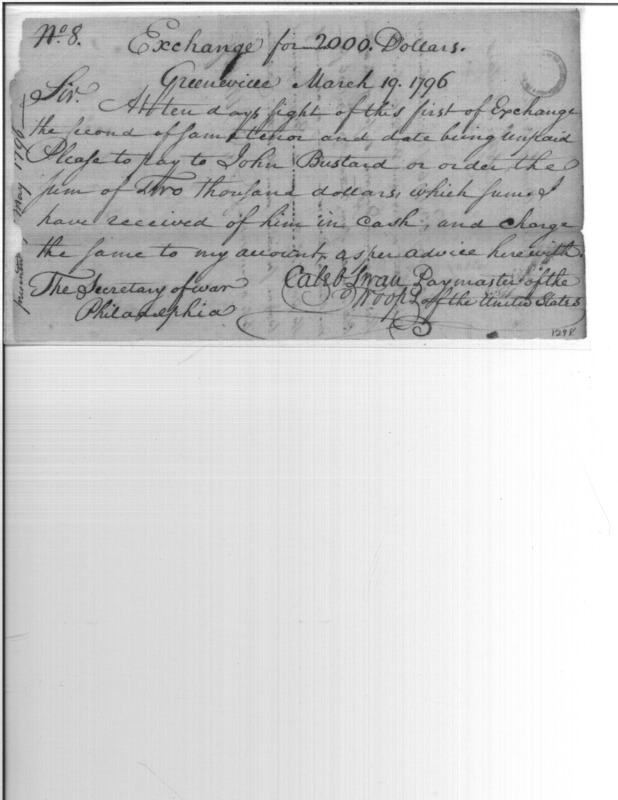 No. 8.
Exchange for 2000. Dollars.
Greeneville March 19. 1796
Sir.
At ten days sight of this first of Exchange
the second of same tenor and date being unpaid
Please to pay to John Bustard or order the
sum of Two thousand dollars, which sum I
have received of him in Cash, and charge
the same to my account, as per advice herewith.
The Secretary of war
Philadelphia
Caleb Swan Paymaster of the
Troops of the United States
May 1796
1298